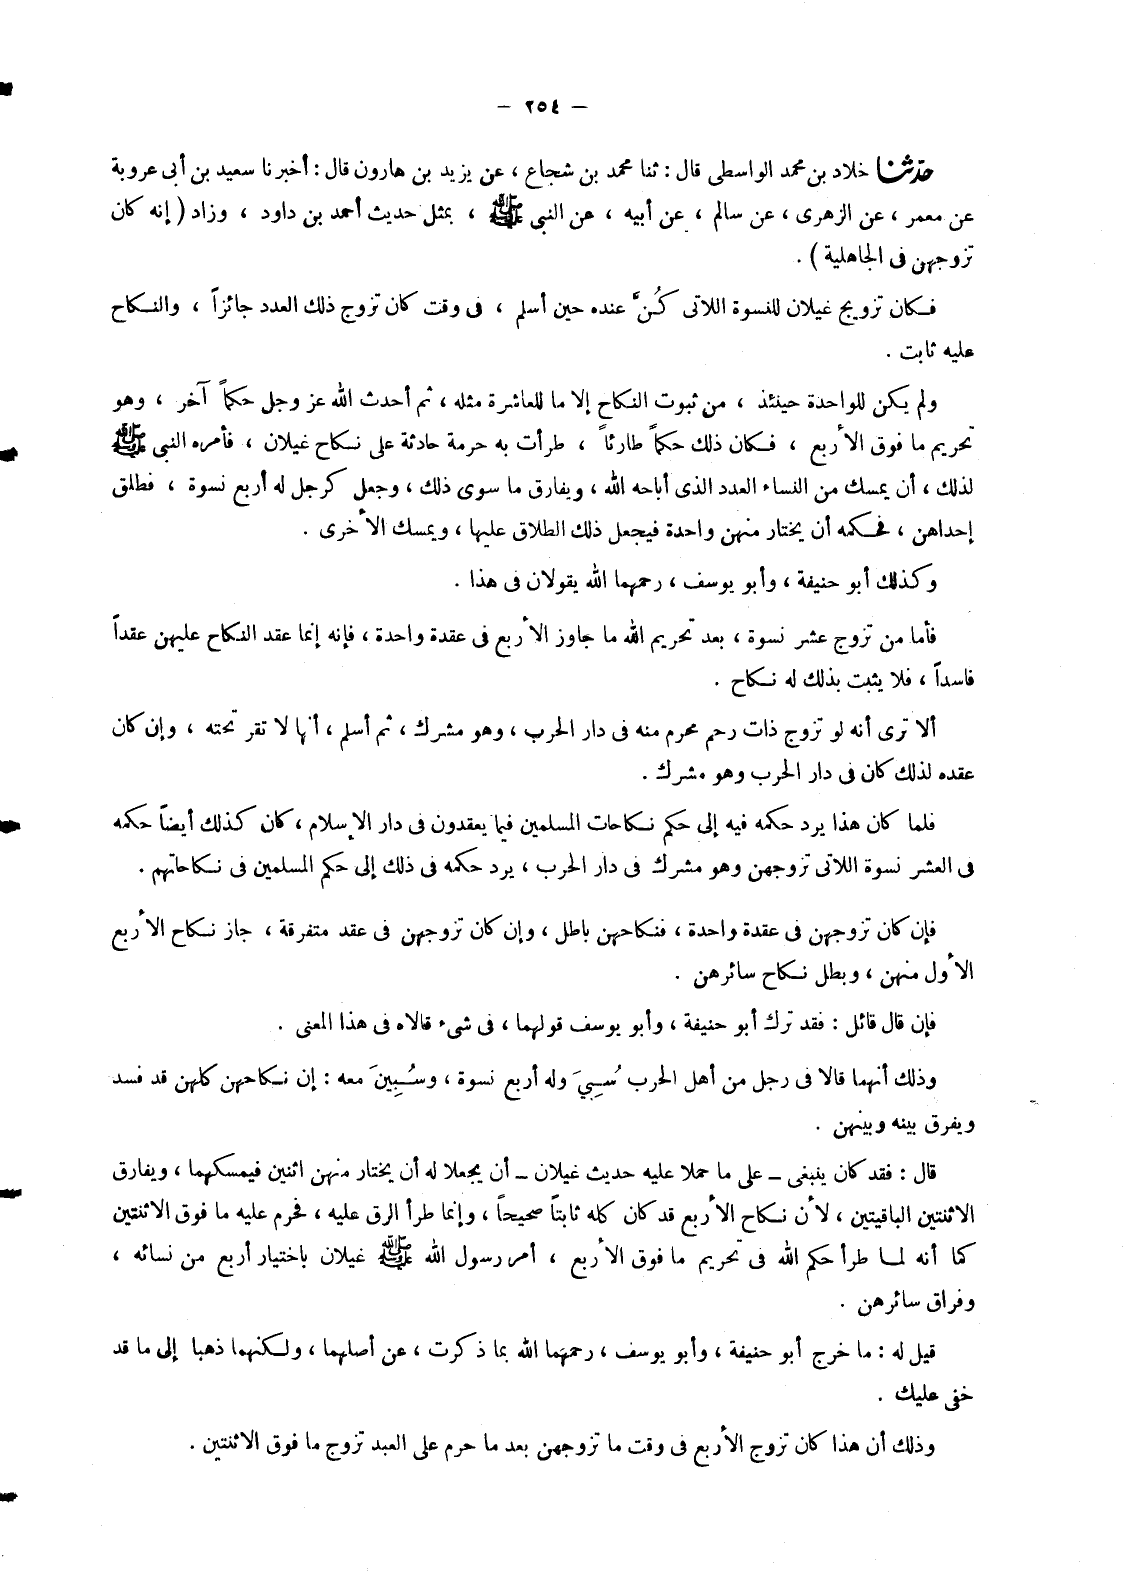 — ٢٥٤ —
حدثنا خلاد بن محمد الواسطى قال : ثنا محمد بن شجاع ، عن يزيد بن هارون قال : أخبرنا سعيد بن أبى عروبة
عن معمر ، عن الزهرى ، عن سالم ، عن أبيه ، عن النبى ﷺ ، بمثل حديث أحمد بن داود ، وزاد ( إنه كان
تزوجهن فى الجاهلية ) .
فكان تزويج غيلان للنسوة اللاتى كُنَّ عنده حين أسلم ، فى وقت كان تزوج ذلك العدد جائزاً ، والنكاح
عليه ثابت .
ولم يكن للواحدة حينئذ ، من ثبوت النكاح إلا ما للعاشرة مثله ، ثم أحدث الله عز وجل حكماً آخر ، وهو
تحريم ما فوق الأربع ، فكان ذلك حكماً طارئاً ، طرأت به حرمة حادثة على نكاح غيلان ، فأمره النبى ﷺ
لذلك ، أن يمسك من النساء العدد الذى أباحه الله ، ويفارق ما سوى ذلك ، وجعل كرجل له أربع نسوة ، فطلق
إحداهن ، فحكمه أن يختار منهن واحدة فيجعل ذلك الطلاق عليها ، ويمسك الأخرى .
وكذلك أبو حنيفة ، وأبو يوسف ، رحمهما الله يقولان فى هذا .
فأما من تزوج عشر نسوة ، بعد تحريم الله ما جاوز الأربع فى عقدة واحدة ، فإنه إنما عقد النكاح عليهن عقداً
فاسداً ، فلا يثبت بذلك له نكاح .
ألا ترى أنه لو تزوج ذات رحم محرم منه فى دار الحرب ، وهو مشرك ، ثم أسلم ، أنها لا تقر تحته ، وإن كان
عقده لذلك كان فى دار الحرب وهو مشرك .
فلما كان هذا يرد حكمه فيه إلى حكم نكاحات المسلمين فيما يعقدون فى دار الإسلام ، كان كذلك أيضاً حكمه
فى العشر نسوة اللاتى تزوجهن وهو مشرك فى دار الحرب ، يرد حكمه فى ذلك إلى حكم المسلمين فى نكاحاتهم .
فإن كان تزوجهن فى عقدة واحدة ، فنكاحهن باطل ، وإن كان تزوجهن فى عقد متفرقة ، جاز نكاح الأربع
الأول منهن ، وبطل نكاح سائرهن .
فإن قال قائل : فقد ترك أبو حنيفة ، وأبو يوسف قولهما ، فى شىء قالاه فى هذا المعنى .
وذلك أنهما قالا فى رجل من أهل الحرب سُبِيَ وله أربع نسوة ، وسُبِينَ معه : إن نكاحهن كلهن قد فسد
ويفرق بينه وبينهن .
قال : فقد كان ينبغى – على ما حملا عليه حديث غيلان – أن يجعلا له أن يختار منهن اثنين فيمسكهما ، ويفارق
الاثنتين الباقيتين ، لأن نكاح الأربع قد كان كله ثابتاً صحيحاً ، وإنما طرأ الرق عليه ، فحرم عليه ما فوق الاثنتين
كما أنه لما طرأ حكم الله فى تحريم ما فوق الأربع ، أمر رسول الله ﷺ غيلان باختيار أربع من نسائه ،
وفراق سائرهن .
قيل له : ما خرج أبو حنيفة ، وأبو يوسف ، رحمهما الله بما ذكرت ، عن أصلهما ، ولكنهما ذهبا إلى ما قد
خفى عليك .
وذلك أن هذا كان تزوج الأربع فى وقت ما تزوجهن بعد ما حرم على العبد تزوج ما فوق الاثنتين .